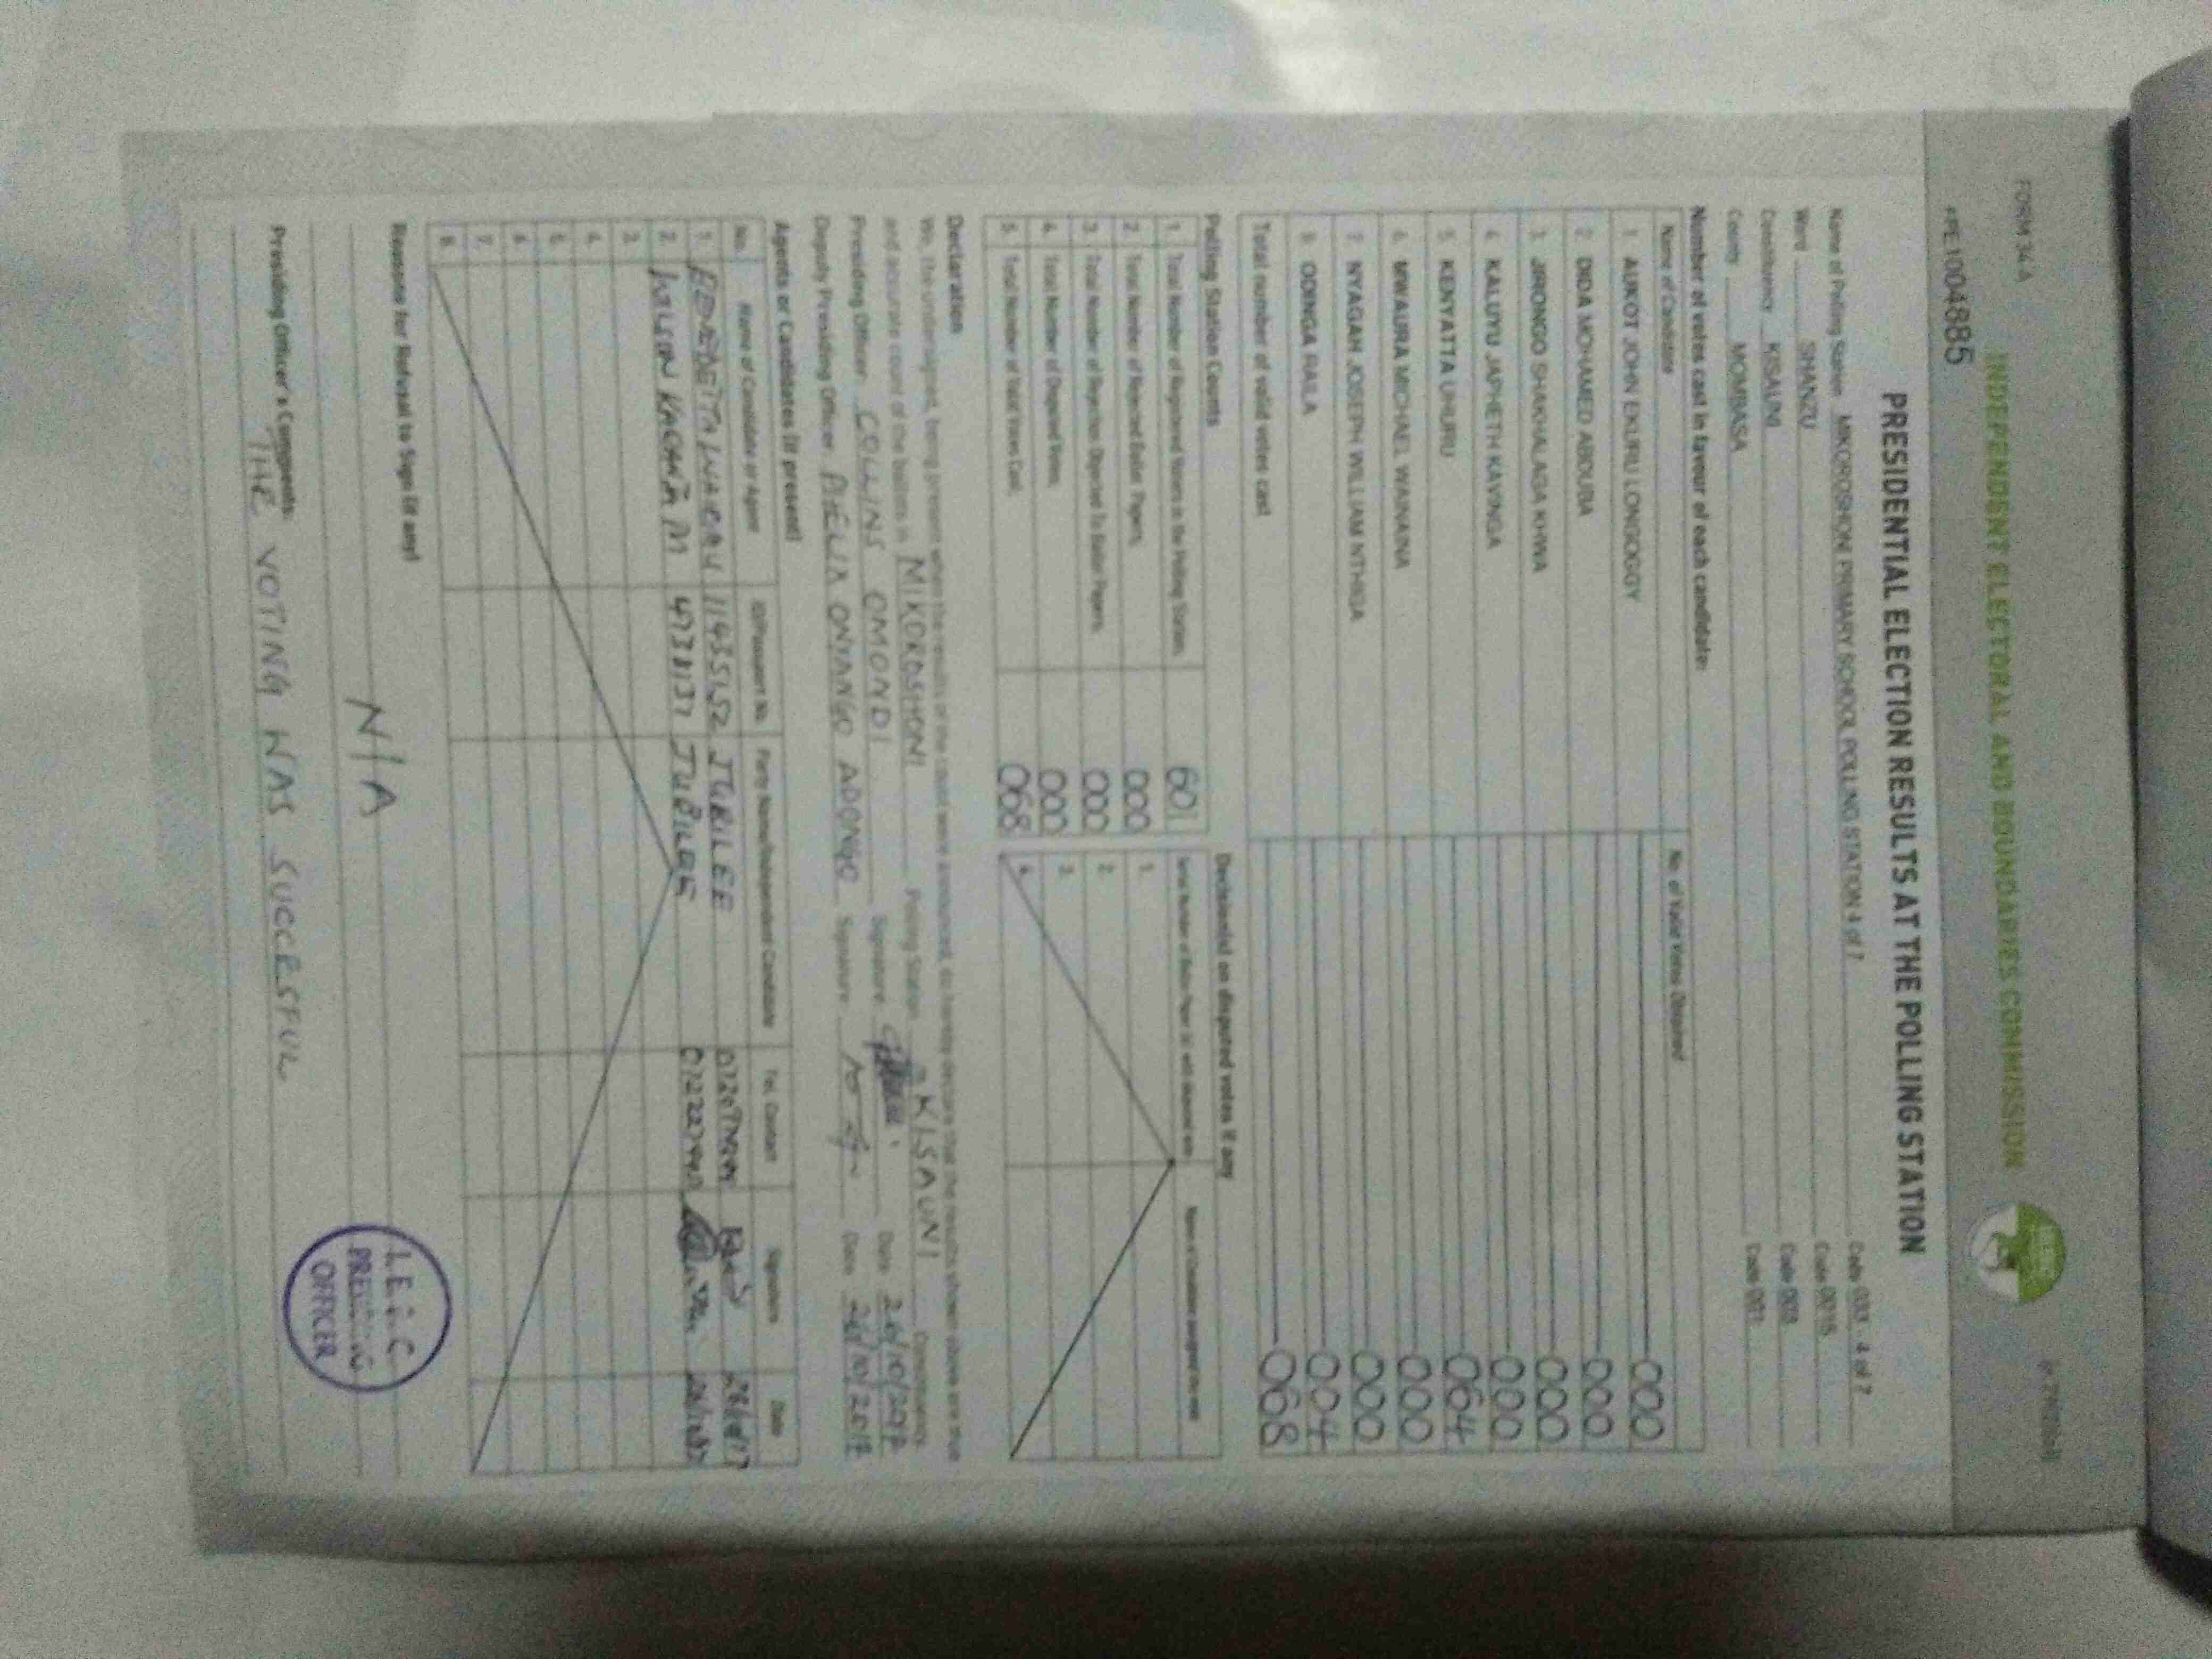 FORM 34 A
INDEPENDENT ELECTORAL AND BOUNDARIES COMMISSION
1004885
PRESIDENTIAL ELECTION RESULTS AT THE POLLING STATION
Name of Polling Station MIKOROSHONI PRIMARY SCHOOL POLLING STATION 4 of 7 Code 033 - 4 of 7
Ward SHANZU Code 0015
Constituency KISAUNI Code 003
County MOMBASA Code 001
Number of votes cast in favour of each candidate:
Name of Candidate No. of Valid Votes Obtained
1 AUKOT JOHN EKURU LONGOGGY 000
2 DIDA MOHAMED ABDUBA 000
3 JIRONGO SHAKHALAGA KHWA 000
4 KALUYU JAPHETH KAVINGA 000
5 KENYATTA UHURU 064
6 MWAURA MICHAEL WAINAINA 000
7 NYAGAH JOSEPH WILLIAM NTHIGA 000
8 ODINGA RAILA 004
Total number of valid votes cast 068
Polling Station Counts
1. Total Number of Registered Voters in the Polling Station 601
2. Total Number of Rejected Ballot Papers 000
3. Total Number of Rejection Objected To Ballot Papers 000
4. Total Number of Disputed Votes 000
5. Total Number of Valid Votes Cast 068
Decision(s) on disputed votes if any
1.
2.
3.
4.
Declaration
We, the undersigned, being present when the results of the count were announced, do hereby declare that the results shown above are true
and accurate count of the ballots in MIKOROSHONI Polling Station KISAUNI Constituency
Presiding Officer COLLINS OMONDI Signature Date 26/10/2017
Deputy Presiding Officer ONYANGO ADONGO Signature Date 26/10/2017
Agents or Candidates (if present)
No. Name of Candidate or Agent ID/Passport No. Party Name/Independent Candidate Tel. Contact Signature Date
1. 11455152 JUBILEE
2. JUBILEE
3.
4.
5.
6.
7.
8.
Reasons for Refusal to Sign (if any)
N/A
Presiding Officer's Comments:
THE VOTING WAS SUCCESFUL
PRESIDING
OFFICER